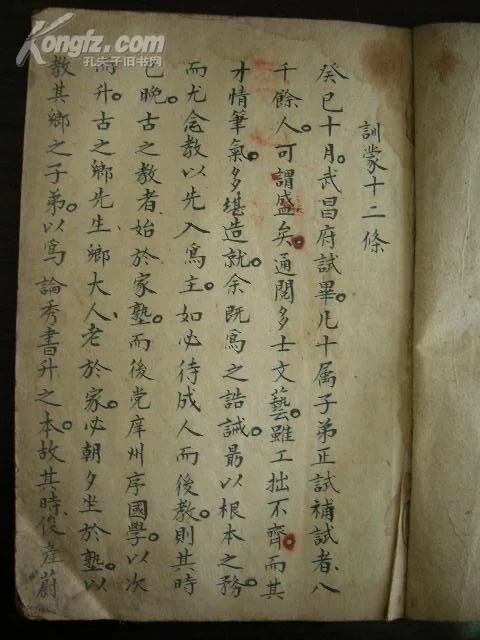 Kongfz.com
孔夫子旧书网
訓蒙十二條
癸巳十月。武昌府試畢。凡十属子弟正試補試者、八
千餘人。可謂盛矣。通閱多士文藝。雖工拙不齊。而其
才情筆氣。多堪造就。余既爲之誥誡。最以根本之務。
而尤念教以先入爲主。如必待成人而後教。則其時
已晚。古之教者、始於家塾。而後党庠州序國學。以次
而升。古之鄉先生、鄉大人、老於家。必朝夕坐於塾。以
教其鄉之子弟。以爲論秀書升之本。故其時俊產蔚